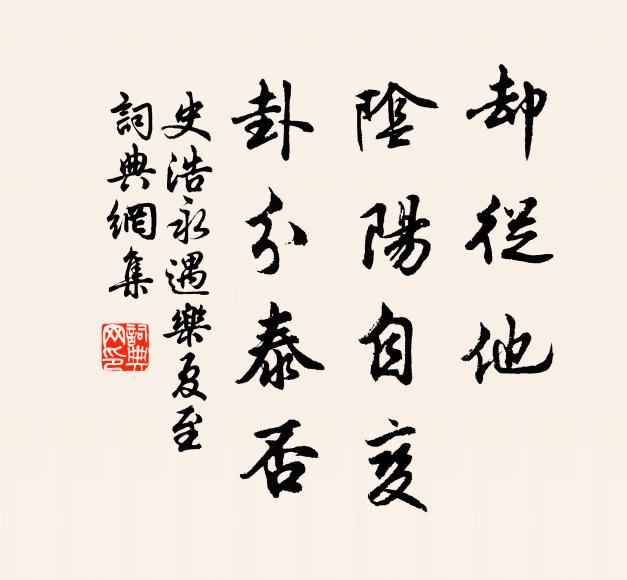 却從他
陰陽自變
卦分泰否
史浩永遇樂夏至
詞典網集
詞典
网印